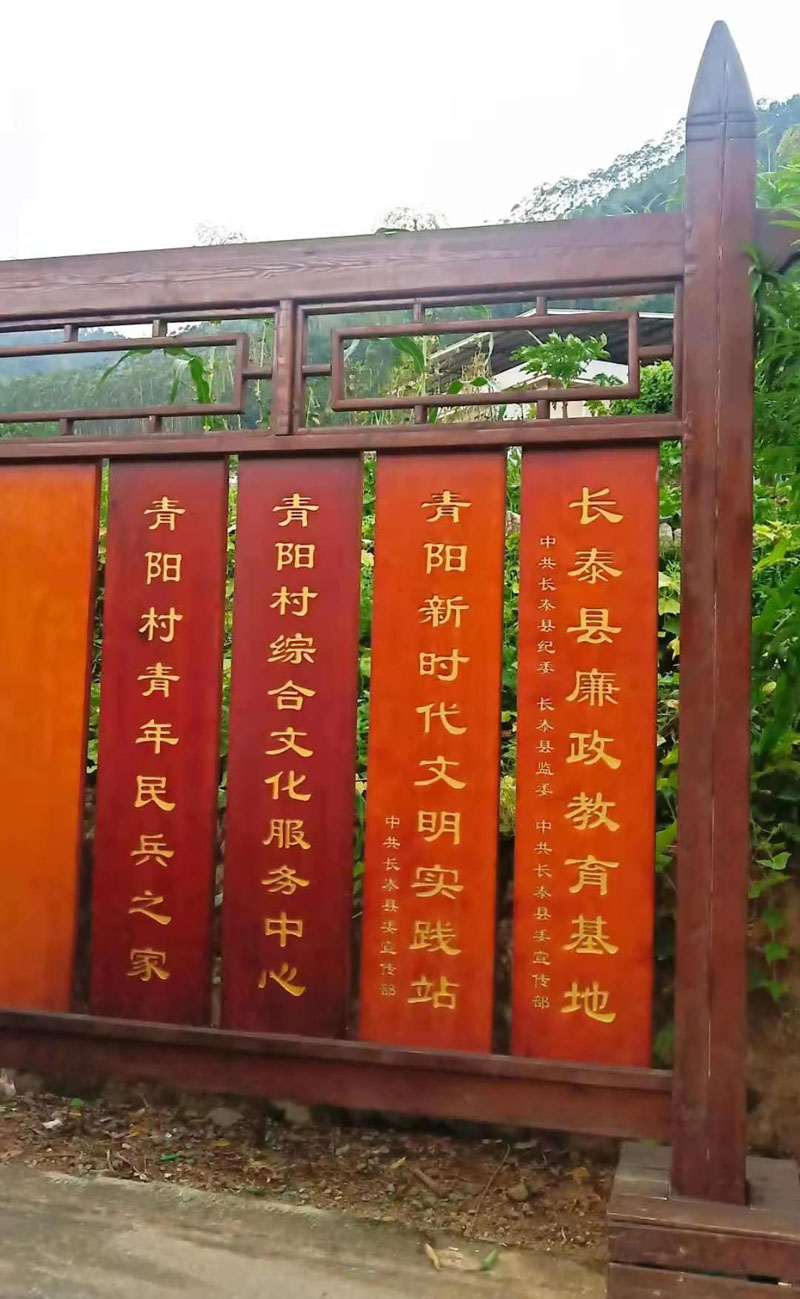 长泰县廉政教育基地
中共长泰县纪委 长泰县监委 中共长泰县委宣传部
青阳新时代文明实践站
中共长泰县委宣传部
青阳村综合文化服务中心
青阳村青年民兵之家